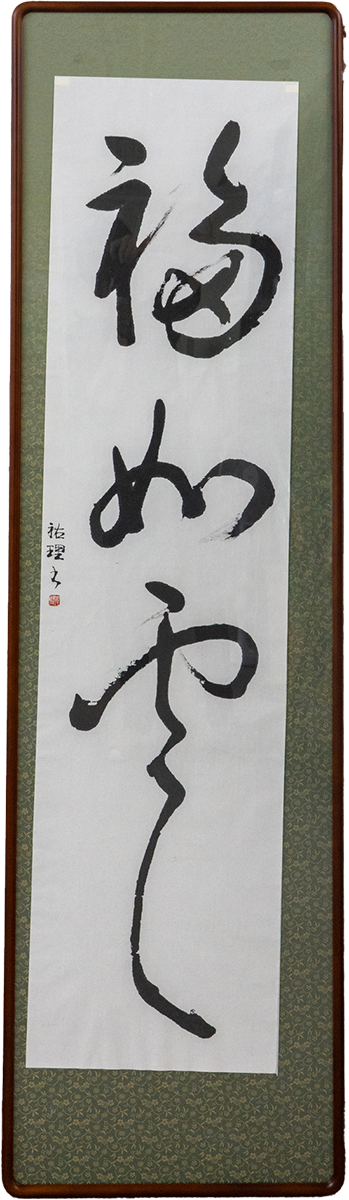 福如雲
祐理书